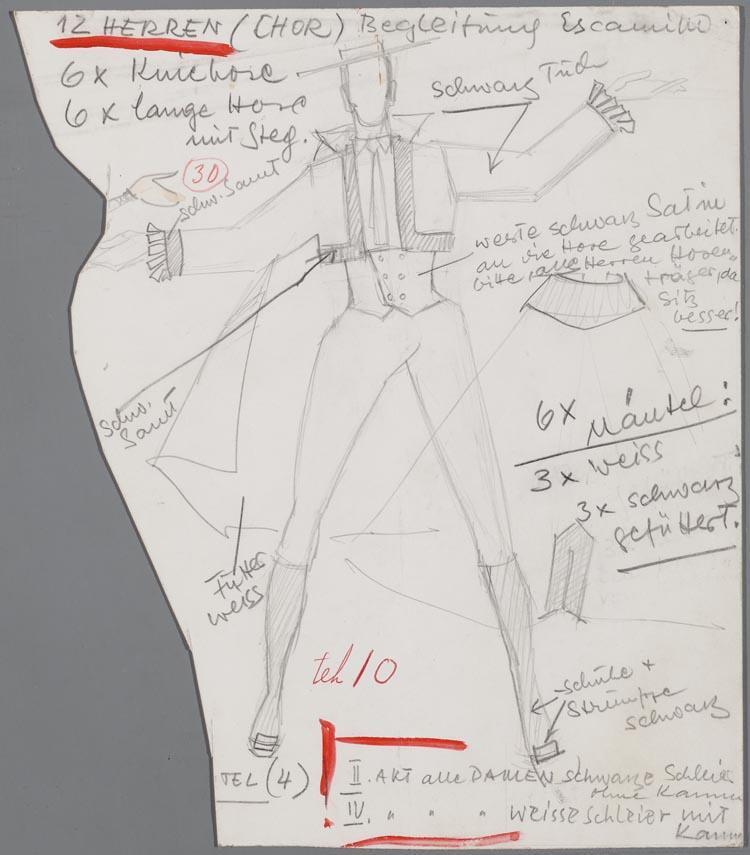 12 HERREN (CHOR) Begleitung Escamillo.
6 x Kniehose
6 x lange Hose
mit Steg.
schwarz Tuch
30
schw. Samt
weste schwarz Satin
an die Hose gearbeitet.
bitte, alle Herren Hosen-
träger, da
Sitz
besser!
schw.
Samt
6x Mäntel:
3x weiss
3x schwarz
gefüttert.
Futter
weiss
schuhe +
Strümpfe
schwarz
TEL (4)
II. AKT alle DAMEN schwarze Schleier
ohne Kamm
IV. " " " weisse schleier mit
Kamm